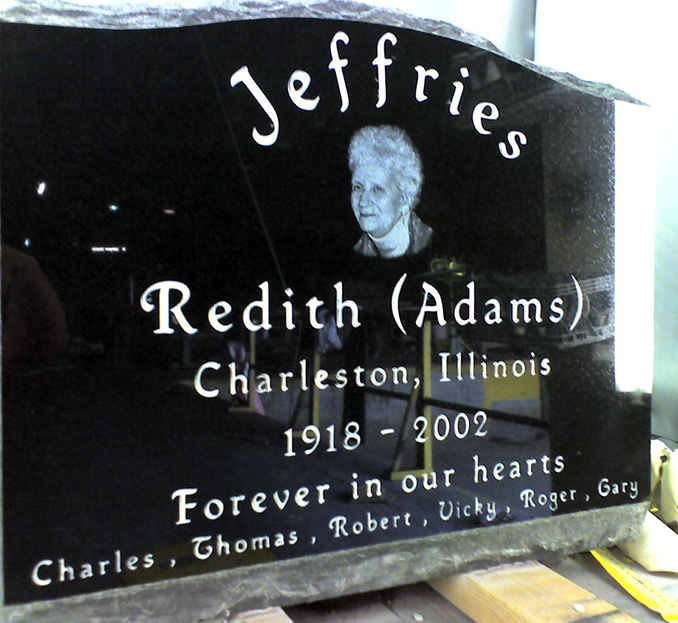 Jeffries
Redith (Adams)
Charleston, Illinois
1918 - 2002
Forever in our hearts
Charles , Thomas , Robert , Vicky , Roger , Gary